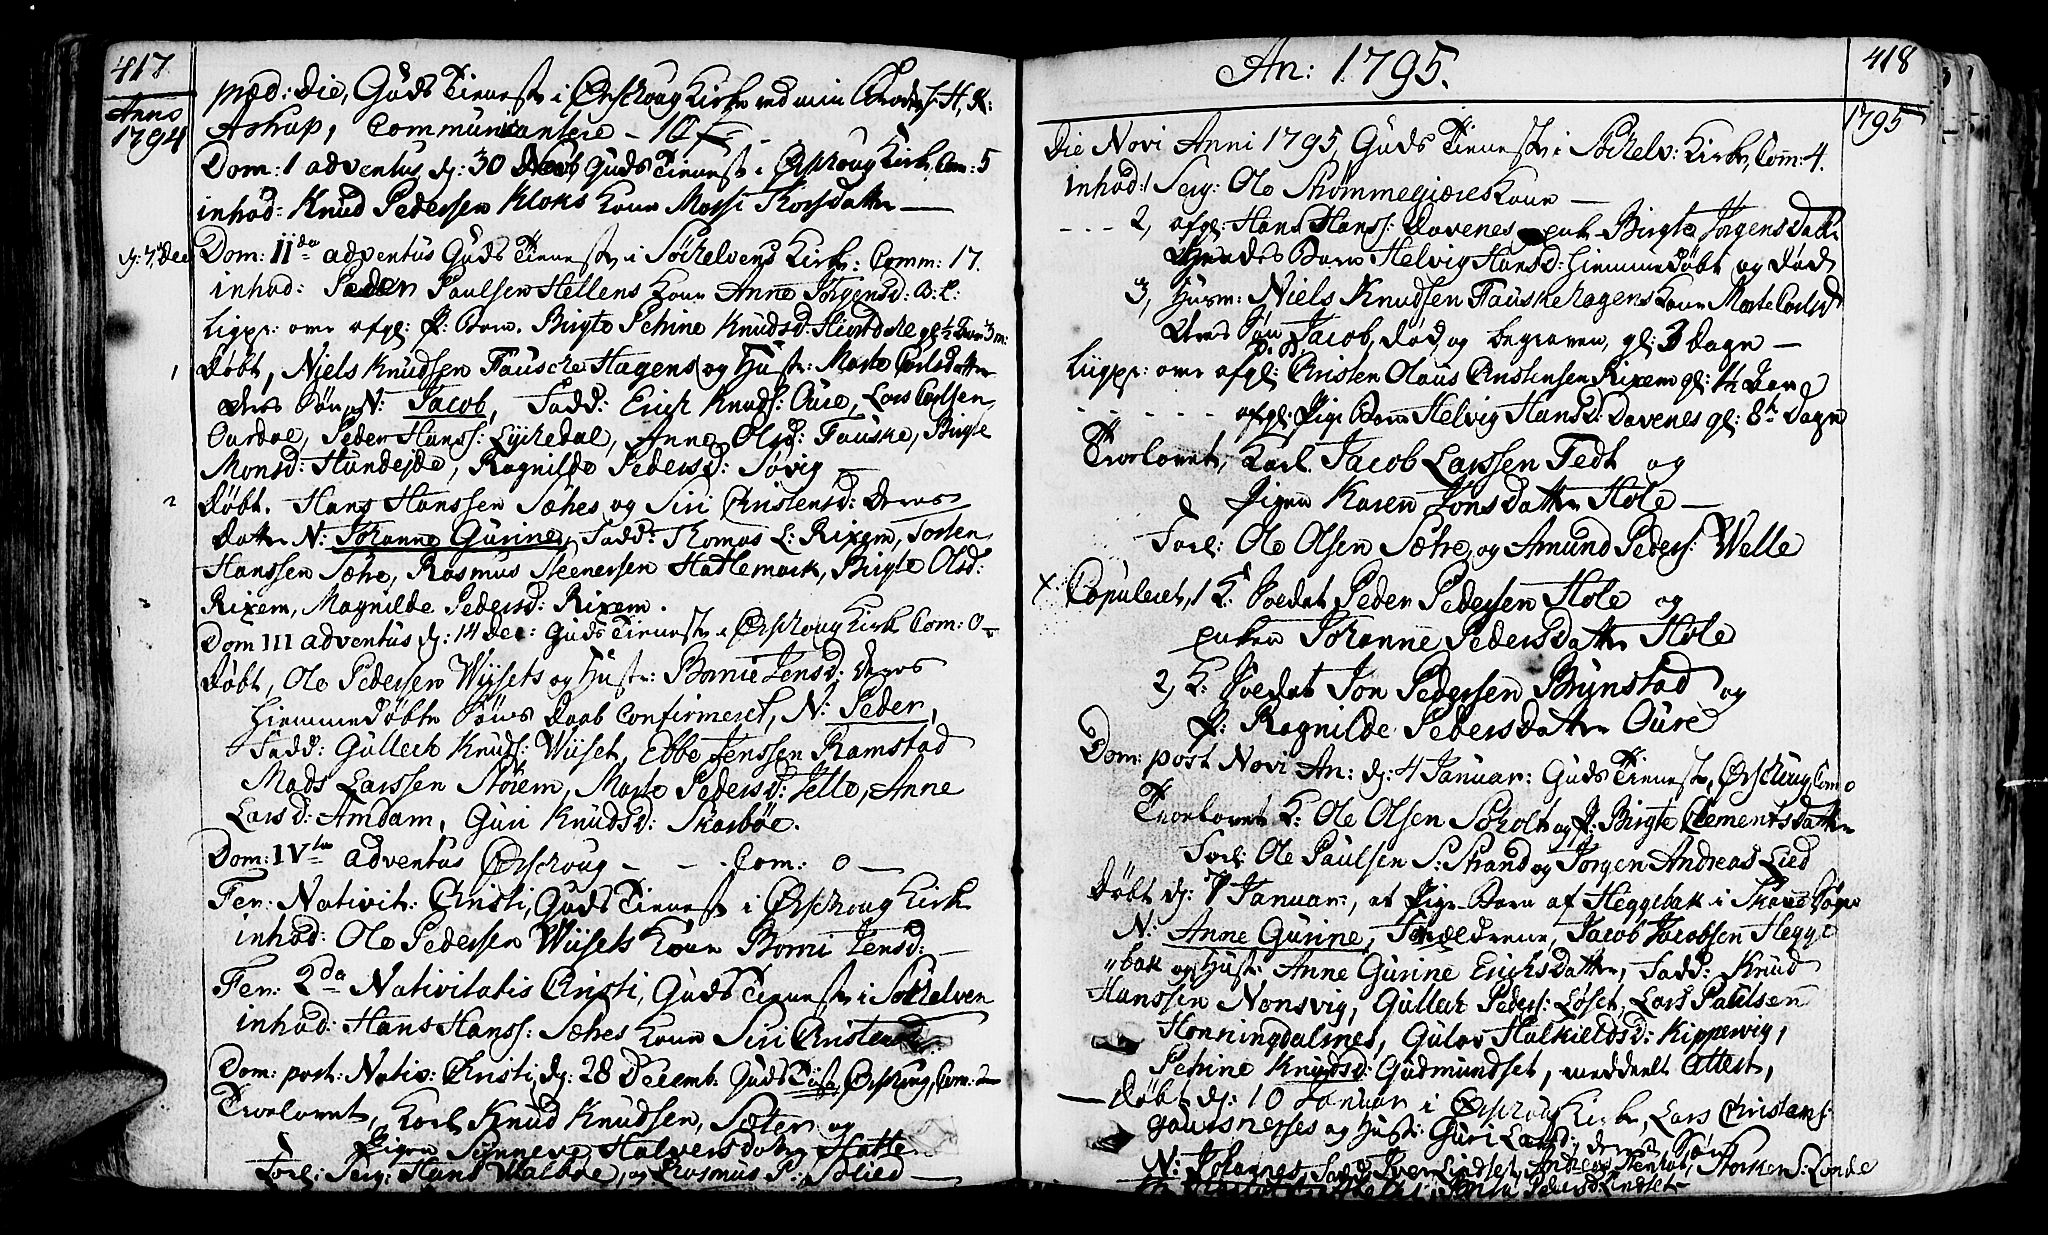 417.
Anno
1794
præd: Die, Guds Tieneste i Ørschoug Kirke ved min H. K:
Astrup, Communicantere - 10
Dom: 1 adventus d: 30 Novb Guds Tieneste i Ørschoug Kirk, Com: 5
inhod: Knud Pedersen Kloks Kone Massi Korsdatter —
d: 7, Dec
Dom: II da adventus Guds Tieneste i Søchelvens Kirk: Comm: 17.
inhod: Peder Paulsen Hellens Kone Anne Jørgensd: B. L:
Ligpr: over afgl: P: Barn. Birgte Petrine Knudsd: gl: ½ 3 m:
1
Døbt, Niels Knudsen Fauske Hagens og Hustr: Marte Carlsdatter
deres Søn, N: Jacob, Fadd: Erich Knuds: Oure, Lars Carlsen
Aardal, Peder Hanss: Lyckedal, Anne Olsd: Fauske, Birgte
Monsd: Hundejde, Ragnilde Pedersd: Søvig —
2
Døbt. Hans Hanssen Sæhes og Siri Christensd: deres
datter N: Johanne Gurine, Fadd: Thomas L: Rixem, Torsten
Hanssen Sæhre, Rasmus Steenersen Hatlemark, Birgte Olsd:
Rixem, Magnilde Pedersd: Rixem.
Dom III adventus d: 14 Dec: Guds Tieneste i Ørschoug Kirk Com: 0 —
Døbt, Ole Pedersen Wiisets og Hustr: Bornie Jensd: deres
hiemmedøbte Søns Daab confirmeret, N: Peder,
Fadd: Gullech Knuds: Wiiset, Ebbe Jenssen Ramstad
Mads Larssen Nørem, Marte Pedersd: Jelle, Anne
Larsd: Amdam, Guri Knudsd: Skarbøe.
Dom: IV ta adventus Ørschoug - - - Com: 0 —
Fer: Nativit: Christi, Guds Tieneste i Ørschoug Kirk
inhod: Ole Pedersen Wiisets Kone Borni Jensd: —
Fer: 2 da Nativitatis Christi, Guds Tieneste i Søchelven
inhod: Hans Hanss: Sæhes Kone Siri Christensd:
Dom: post: Nativ: Christi, d: 28 Decemb. Guds Tieneste Ørschoug, Com: 2
Troelovet, Karl Knud Knudsen, Sæter og
Pigen Synneve Halversdatter Hatle
Forl: Serg: Hans Walbøe, og Rasmus P: Solied —
An: 1795.
418
1795
Die Novi Anni 1795, Guds Tieneste i Søchelv: Kirk, Com: 4.
inhod: 1 Serg: Ole Strømmegiæres Kone —
- - - 2, afgl: Hans Hanss: Davenes Enke Birgte Jørgensdatter
Barn Helvig Hansd: hiemmedøbt og død
3, Husm: Niels Knudsen Fauske Hagens Kone Marte Carlsd
deres Søn Jacob, død og begraven, gl: 3 Dage —
Liigpr: over afgl: Christen Olaus Christensen Rixem gl: ½ Dag
- - - - - - afgl: Pige Barn Helvig Hansd: Davenes gl: 8te Dage
Troelovet, Karl Jacob Larssen Fedt og
Pigen Karen Jonsdatter Hole —
Forl: Ole Olsen Sæhre, og Amund Peders: Welle
x Copuleret, 1 K: Soldat Peder Pedersen Hole og
Enken Johanne Pedersdatter Hole
2, K: Soldat Jon Pedersen Brynstad og
P: Ragnilde Pedersdatter Oure
Dom: post Novi An: d: 4 Januar: Guds Tieneste, Ørschoug, Com 0
Troelovet K: Ole Olsen Søholt og P: Birgte Clementsdatter
Forl: Ole Paulsen S: Strand og Jørgen Andreas Lied
Døbt d: 7 Januar, et Pige Barn af Heggebak i Skous Sogn
N: Anne Gurine, Forældrene, Jacob Jacobsen Hegge
"bak og Hustr: Anne Gurine Erichsdatter, Fadd: Knud
Hanssen Nonsvig, Gullak Peders: Løset, Lars Paulsen
Honningdalnes, Gulov Halkieldsd: Kippervig,
Petrine Knudsd: Gudmundset, meddeelt Attest,
— Døbt d: 10 Januar i Ørschoug Kirk, Lars Christens:
Gausnesses og Hustr: Guri Larsd: deres Søn
N: Johannes, Fadd: Iver Lindset, Andreas Stenhol, Torsten S: Lande
Pedersd Lindset —